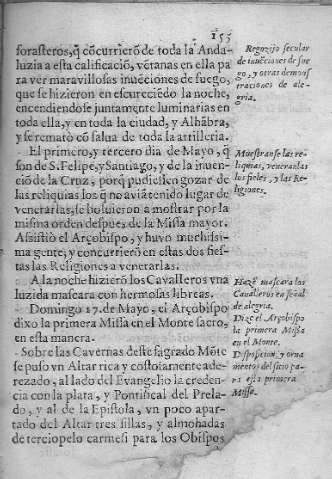 155
forasteros, q̃ cõcurrierõ de toda la Anda-
luzia a esta calificació, vẽtanas en ella pa
ra ver marauillosas inuẽciones de fuego,
que se hizieron en escureciẽdo la noche,
encendiendose juntamẽte luminarias en
toda ella, y en toda la ciudad, y Alhãbra,
y se rematò cõ salua de toda la artilleria.
El primero, y tercero dia de Mayo, q̃
son de S. Felipe, y Santiago, y de la inuen-
ció de la Cruz, porq̃ pudiessen gozar de
las reliquias los q̃ no auiã tenido lugar de
venerarlas, se boluieron a mostrar por la
misma orden despues de la Missa mayor.
Assistio el Arçobispo, y huvo muchissi-
ma gente, y concurrierõ en estas dos fies-
tas las Religiones a venerarlas.
A la noche hizierõ los Cavalleros vna
luzida mascara con hermosas libreas.
Domingo 17. de Mayo, el Arçobispo
dixo la primera Missa en el Monte sacro,
en esta manera.
Sobre las Cavernas deste sagrado Mõte
se puso vn Altar rica y costosamente ade-
rezado, al lado del Evangelio la creden-
cia con la plata, y Pontifical del Prela-
do, y al de la Epistola, vn poco apar-
tado del Altar tres sillas, y almohadas
de terciopelo carmesi para los Obispos
Regozijo secular
de inuẽciones de fue-
go, y otras demons
traciones de ale-
gria.
Muestranse las re-
liquias, veneranlas
los fieles, y las Re-
ligiones.
Hazẽ mascara los
Cavalleros en señal
de alegria.
Dize el Arçobispo
la primera Missa
en el Monte.
Disposicion, y orna
mentos del sitio pa-
ra esta primera
Missa.